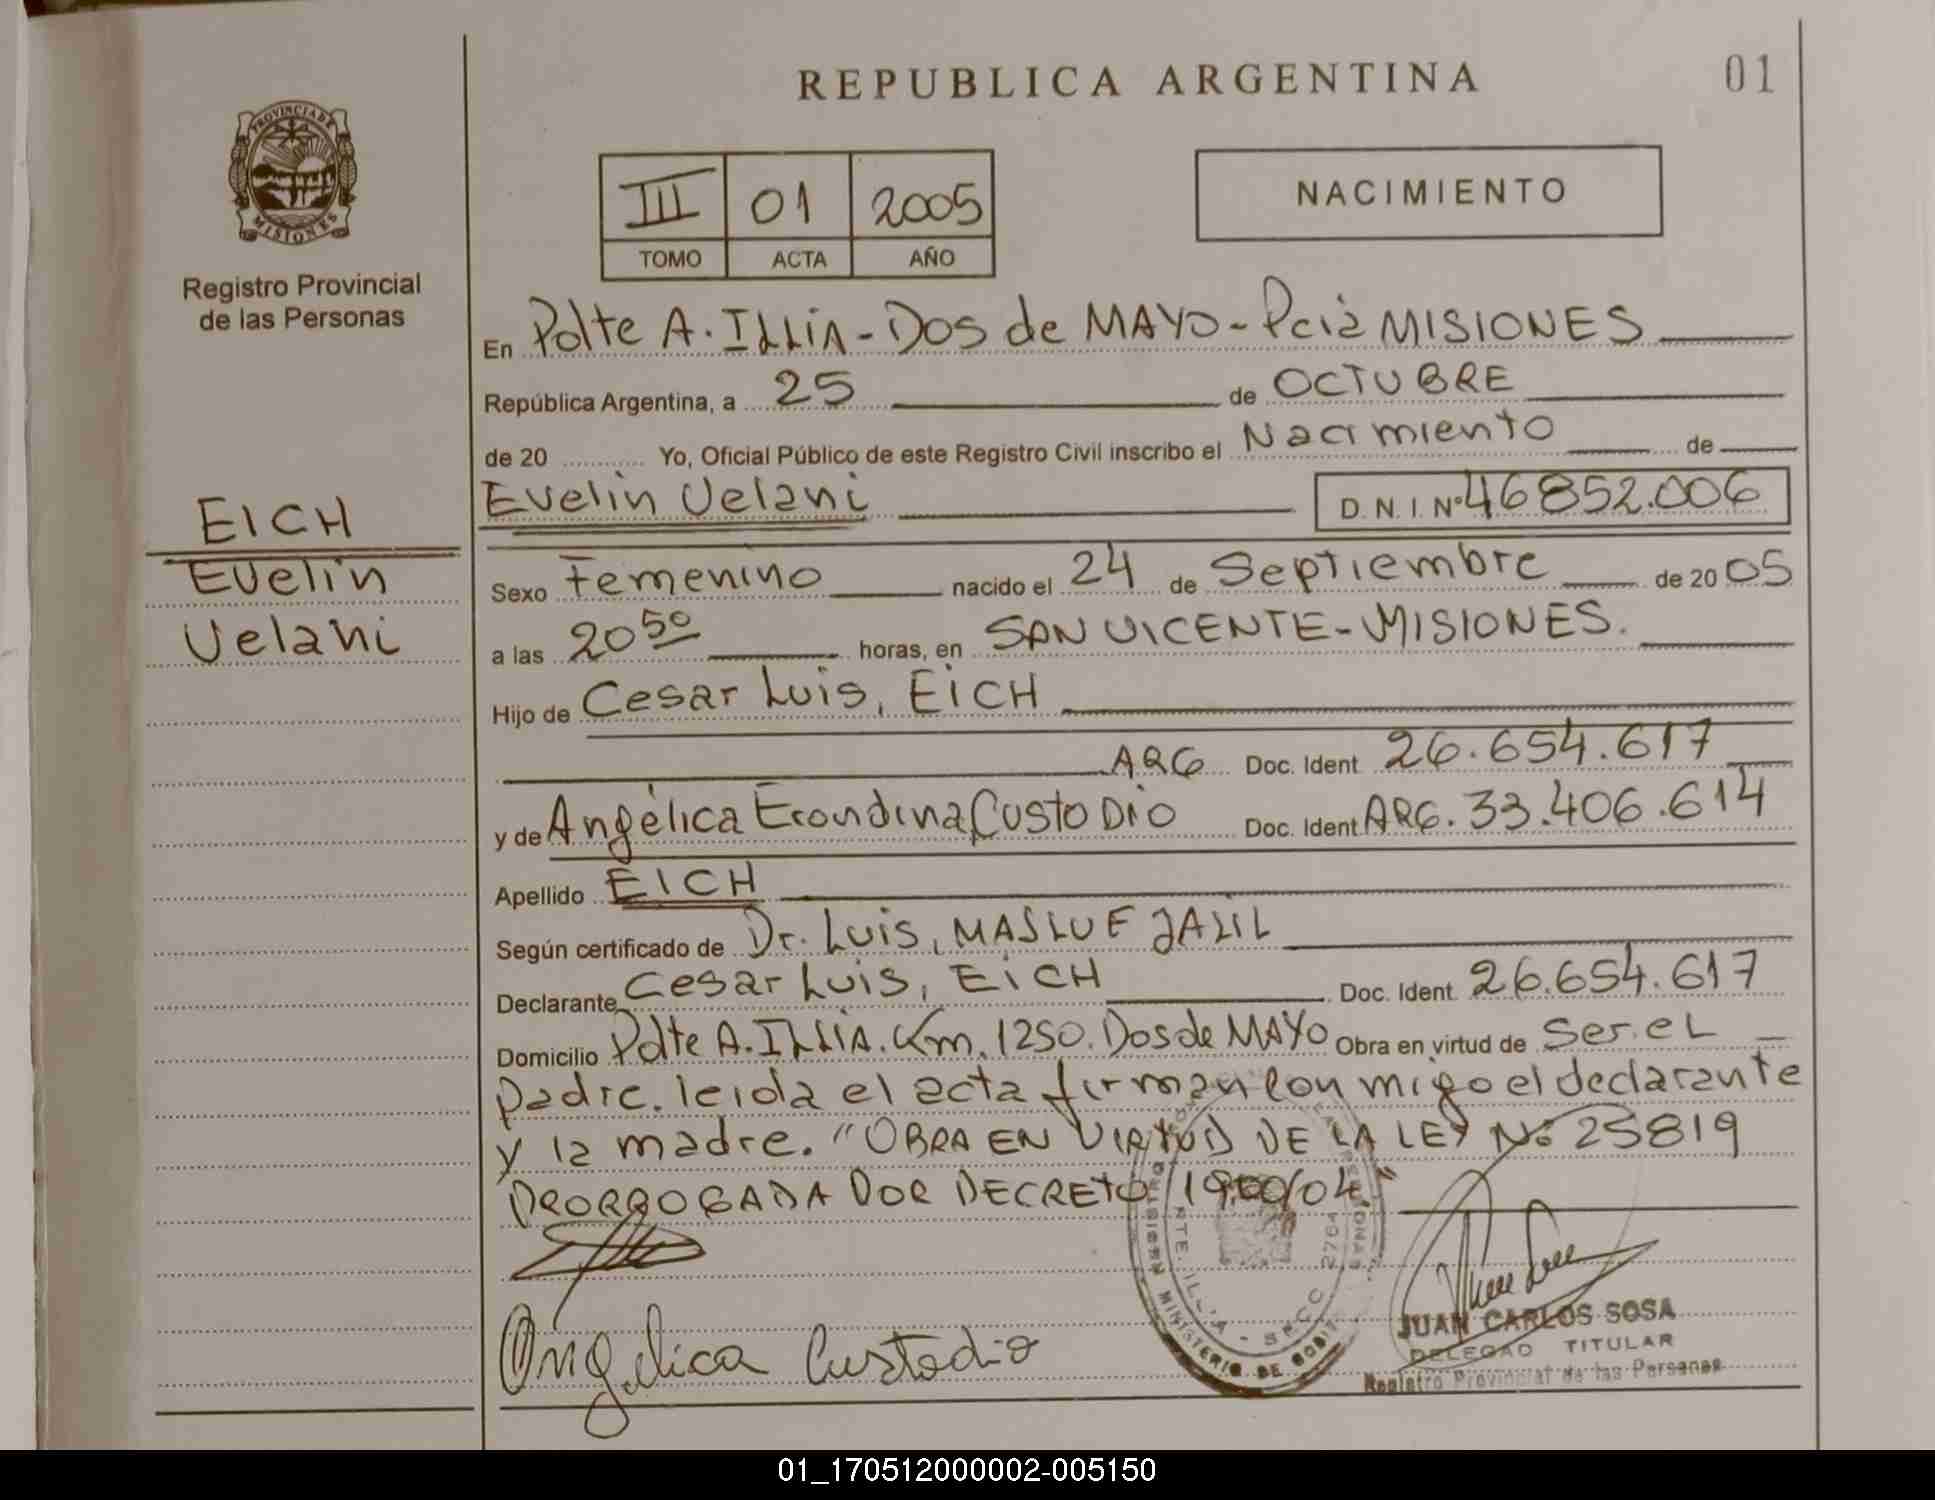 REPUBLICA ARGENTINA
01
PROVINCIA DE
MISIONES
Registro Provincial
de las Personas
III 01 2005
TOMO ACTA AÑO
NACIMIENTO
En Pdte A. ILLIA - DOS de MAYO - Pcia MISIONES
República Argentina, a 25 de OCTUBRE
de 20 Yo, Oficial Público de este Registro Civil inscribo el Nacimiento de
Evelin Velani D.N.I. Nº 46852.006
EICH
Evelin
Velani
Sexo Femenino nacido el 24 de Septiembre de 20 05
a las 20 50 horas, en SAN VICENTE - MISIONES.
Hijo de Cesar Luis, EICH
ARG Doc. Ident 26.654.617
y de Angélica Erondina, CustoDio Doc. Ident ARG. 33.406.614
Apellido EICH
Según certificado de Dr. Luis, MASLUF JALIL
Declarante Cesar Luis, EICH Doc. Ident. 26.654.617
Domicilio Pdte A. ILLIA. Km. 1250. Dos de MAYO Obra en virtud de Ser. eL
padre. leida el acta firman con migo el declarante
y la madre. "OBRA EN VIRTUD DE LA LEY Nº 25819
PRORROGADA POR DECRETO 1900/04"
Angelica Custodio
MINISTERIO DE GOB
PTE. ILLIA - SECC 2764
JUAN CARLOS SOSA
DELEGAD TITULAR
Registro Provincial de las Personas
01_170512000002-005150